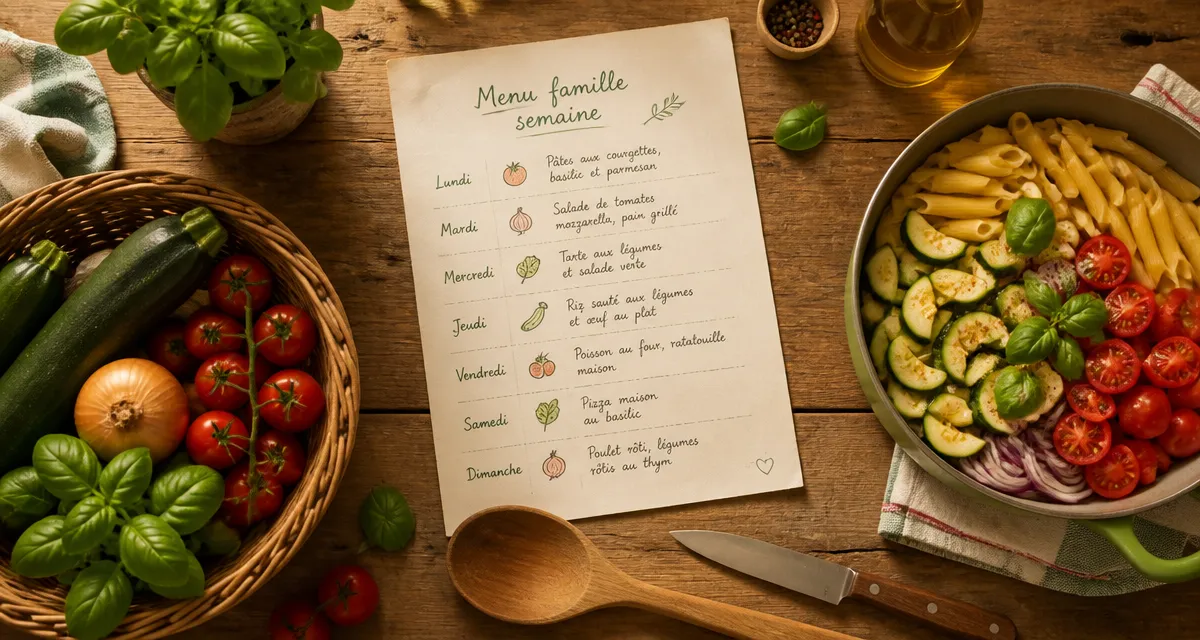 Menu famille
semaine
Lundi
Pâtes aux courgettes,
basilic et parmesan
Mardi
Salade de tomates
mozzarella, pain grillé
Mercredi
Tarte aux légumes
et salade verte
Jeudi
Riz sauté aux légumes
et œuf au plat
Vendredi
Poisson au four, ratatouille
maison
Samedi
Pizza maison
au basilic
Dimanche
Poulet rôti, légumes
rôtis au thym